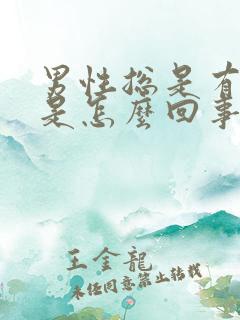 男性总是有
是怎麼回事
王金龍
未经同意禁止转载